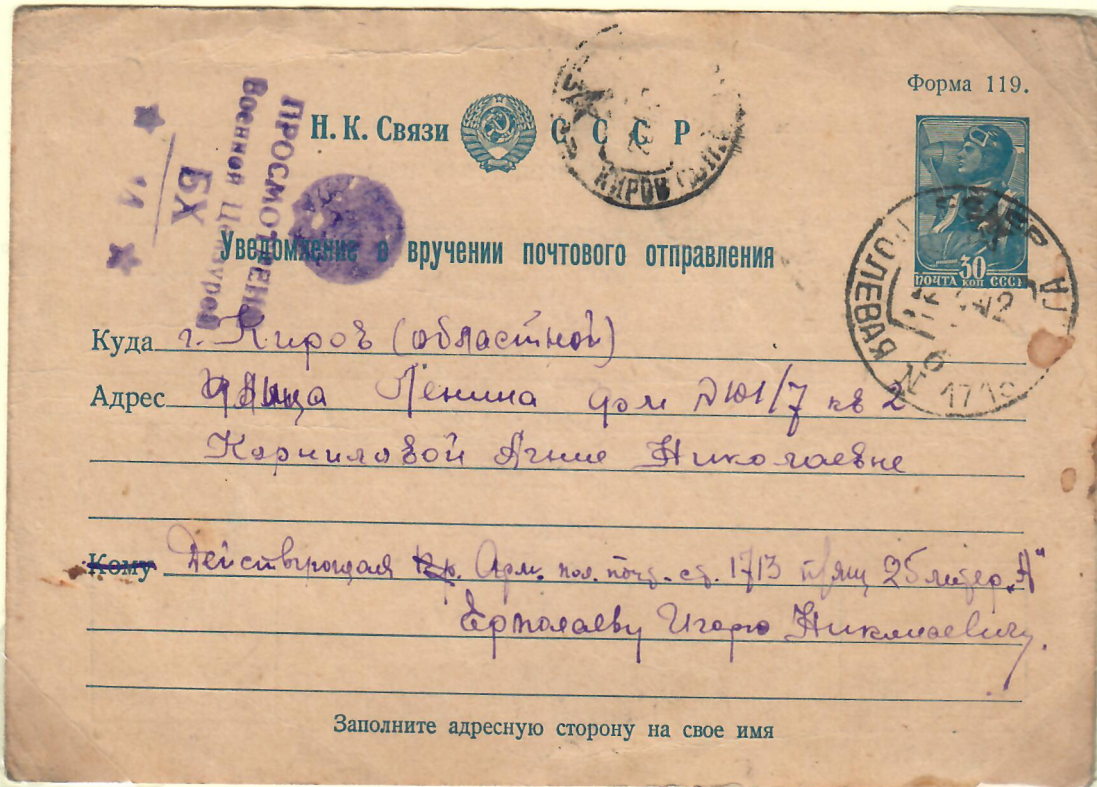 Форма 119.
Н. К. Связи СССР
ПРОСМОТРЕНО
Военной Цензурой
БХ
КИРОВ
ПОЧТА 30 КОП СССР
ПОЛЕВАЯ
Уведомление о вручении почтового отправления
Куда г. Киров (областной)
Адрес улица Ленина дом 101/7 кв 2
Корниловой Агние Николаевне
Кому Действующая Арм. пол. почт. ст. 1713 п/ящ 25 литер „А“
Ермолаеву Игорю Николаевичу.
Заполните адресную сторону на свое имя